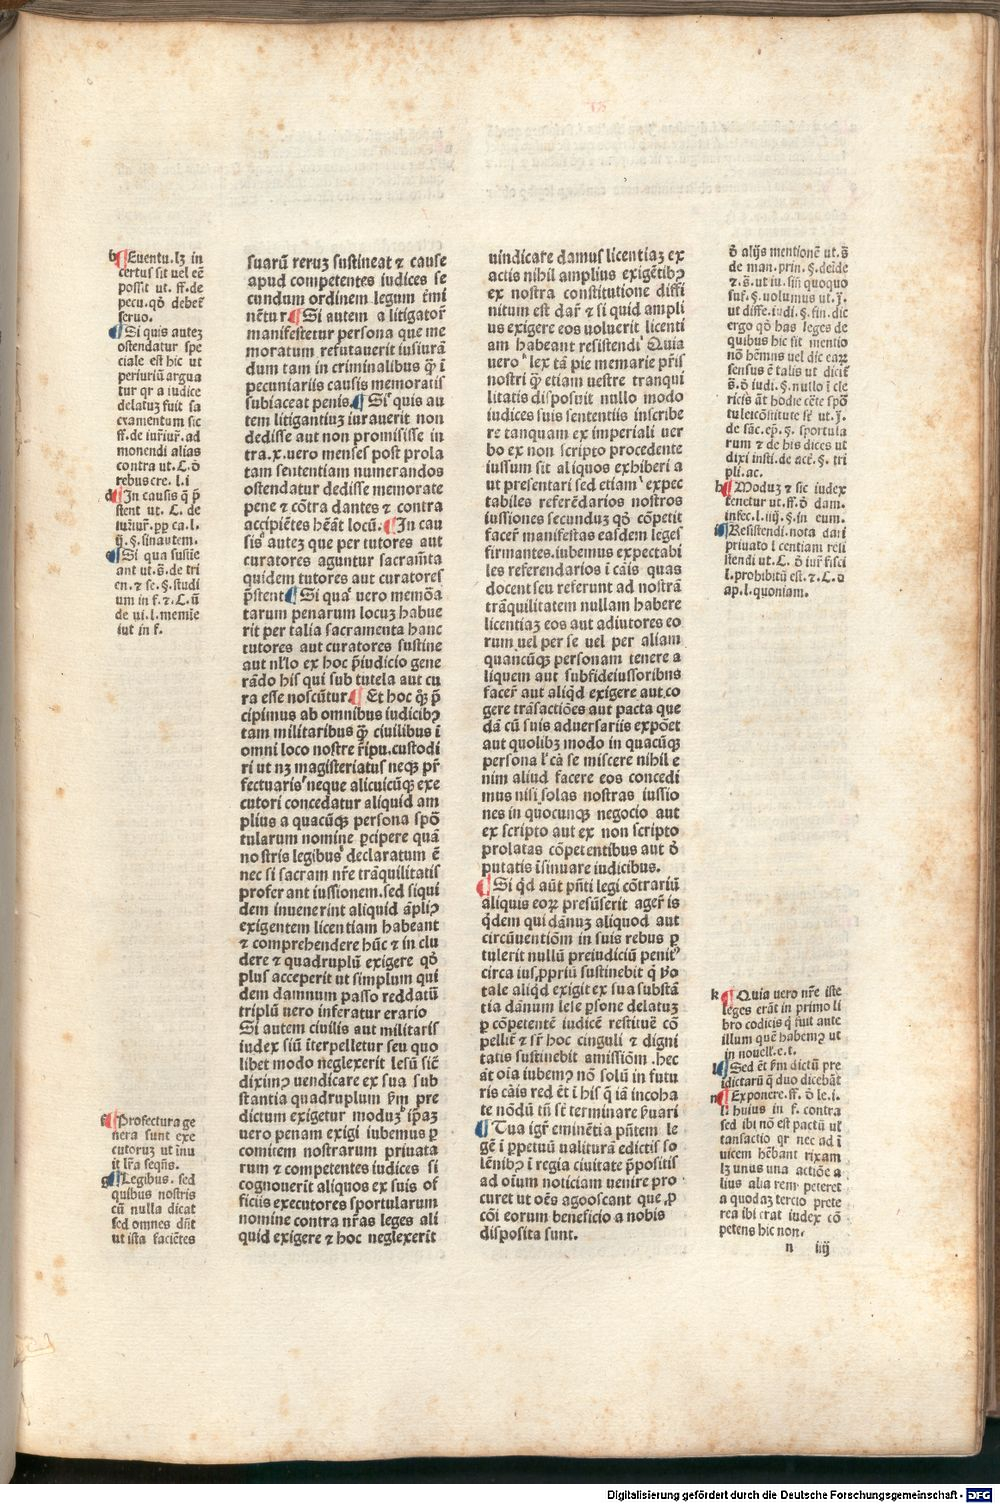 suarū reruz sustineat ⁊ cause
apud competentes iudices se
cundum ordinem legum emi
nētur ¶ Si autem a litigator̄
manifestetur persona que me
moratum refutauerit iusiurā
dum tam in criminalibus q̄ ī
pecuniariis causis memoratis
subiaceat penis. ¶ Si quis au
tem litigantiuz iurauerit non
dedisse aut non promisisse in
tra .x. uero menses post prola
tam sententiam numerandos
ostendatur dedisse memorate
pene ⁊ cōtra dantes ⁊ contra
accipiētes hēāt locū. ¶ In cau
sis autez que per tutores aut
curatores aguntur sacram̄ta
quidem tutores aut curatores
p̄stent ¶ Si qua uero memōa
tarum penarum locuz habue
rit per talia sacramenta hanc
tutores aut curatores sustine
aut nl̄lo ex hoc p̄iudicio gene
rādo his qui sub tutela aut cu
ra esse noscūtur. ¶ Et hoc q̄ꝫ p̄
cipimus ab omnibus iudicibꝰ
tam militaribus q̄ꝫ ciuilibus ī
omni loco nostre r̄ipu. custodi
ri ut nꝫ magisteriatus neqꝫ pr̄
fectuaris neque alicuicūqꝫ exe
cutori concedatur aliquid am
plius a quacūqꝫ persona spō
tularum nomine ꝑcipere quā
nostris legibus declaratum ē
nec si sacram nr̄e trāquilitatis
proferant iussionem. sed siqui
dem inuenerint aliquid āpliꝰ
exigentem licentiam habeant
⁊ comprehendere hūc ⁊ in clu
dere ⁊ quadruplū exigere qō
plus acceperit ut simplum qui
dem damnum passo reddatū
triplū uero inferatur erario
Si autem ciuilis aut militaris
iudex siū īterpelletur seu quo
libet modo neglexerit lesū sic̄
diximꝰ uendicare ex sua sub
stantia quadruplum ꝑm pre
dictum exigetur moduz ip̄aꝫ
uero penam exigi iubemus ꝑ
comitem nostrarum priuata
rum ⁊ competentes iudices si
cognouerit aliquos ex suis of
ficiis executores sportularum
nomine contra nr̄as leges ali
quid exigere ⁊ hoc neglexerit
uindicare damus licentiaz ex
actis nihil amplius exigētibꝰ
ex nostra constitutione diffi
nitum est dar̄ ⁊ si quid ampli
us exigere eos uoluerit licenti
am habeant resistendi Quia
uero lex tā pie memarie pr̄is
nostri q̄ꝫ etiam uestre tranqui
litatis disposuit nullo modo
iudices suis sententiis inscribe
re tanquam ex imperiali uer
bo ex non scripto procedente
iussum sit aliquos exhiberi a
ut presentari sed etiam expec
tabiles referēdarios nostros
iussiones secunduz qō cōpetit
facer̄ manifestas easdem leges
firmantes. iubemus expectabi
les referendarios ī cāis quas
docent seu referunt ad nostrā
trāquilitatem nullam habere
licentiaz eos aut adiutores eo
rum uel per se uel per aliam
quancūqꝫ personam tenere a
liquem aut subfideiussoribus
facer̄ aut aliq̄d exigere aut co
gere trāsactiōes aut pacta que
dā cū suis aduersariis expōet
aut quolibꝫ modo in quacūqꝫ
persona l̄ cā se miscere nihil e
nim aliud facere eos concedi
mus nisi solas nostras iussio
nes in quocunqꝫ negocio aut
ex scripto aut ex non scripto
prolatas cōpetentibus aut ō
putatis īsinuare iudicibus.
¶ Si q̄d aūt pn̄ti legi cōtrariū
aliquis eorꝫ presūserit ager̄ is
q̄dem qui dānuz aliquod aut
circūuentiōm in suis rebus ꝑ
tulerit nullū preiudiciū penitꝰ
circa ius ꝓpriū sustinebit q̄ ꝟo
tale aliq̄d exigit ex sua substā
tia dānum lese ꝑsone delatuz
ꝑ cōpetentē iudicē restituē cō
pellit̄ ⁊ sr̄ hoc cinguli ⁊ digni
tatis sustinebit amissiōm. hec
āt oīa iubemꝰ nō solū in futu
ris cāis red ēt ī his q̄ iā incoha
te nōdū tn̄ st̄ terminare ꝑuari
¶ Tua igr̄ eminētia pn̄tem le
gē ī ꝑpetuū ualiturā edictis so
lēnibꝰ ī regia ciuitate p̄positis
ad oīum noticiam uenire pro
curet ut oēs agooscant que ꝓ
cōi eorum beneficio a nobis
disposita sunt.
b ¶ Euentu. lꝫ in
certus sit uel eē
possit ut. ff. de
pecu. qō debet̄
seruo.
¶ Si quis autez
ostendatur spe
ciale est hic ut
periuriū argua
tur qr a iudice
delatuz fuit sa
cramentum sic
ff. de iur̄iur̄. ad
monendi alias
contra ut. C. ō
rebus cre. l. i
d ¶ In causis q̄ p̄
stent ut. C. de
iur̄iur̄. ꝓp ca. l.
ij. §. sinautem.
¶ Si qua sustie
ant ut. s̄. de tri
en. ⁊ se. §. studi
um in f. ⁊. C. ū
de ui. l. memie
iut in f.
f ¶ Profectura ge
nera sunt exe
cutoruz ut īnu
it lr̄a seqn̄s.
g ¶ Legibus. sed
quibus nostris
cū nulla dicat
sed omnes dn̄t
ut ista faciētes
ō alijs mentionē ut. s̄
de man. prin. §. deīde
⁊. s̄. ut iu. sin̄ quoquo
suf̄. §. uolumus ut. j̄.
ut diffe. iudi. §. fin. dic
ergo qō has leges de
quibus hic sit mentio
nō hēmꝰs uel dic earꝫ
sensus ē talis ut dicit̄
s̄. ō iudi. §. nullo ī cle
ricis āt hodie cēte spō
tule icōstitute sr̄ ut. j̄.
de sāc. ep̄. §. sportula
rum ⁊ de his dices ut
dixi insti. de act̄. §. tri
pli. ac.
h ¶ Moduz ⁊ sic iudex
tenetur ut. ff. ō dam.
infec. l. iiij. §. in eum.
i ¶ Resistendi. nota dari
priuato l centiam resi
stendi ut. C. ō iur̄ fisci
l. prohibitū est. ⁊. C. ō
ap. l. quoniam.
k ¶ Quia uero nr̄e iste
leges erāt in primo li
bro codicis q̄ fuit ante
illum quē habemꝰ ut
in nouell̄. e. t.
¶ Sed ēt ꝑm dictū pre
idictarū q̄ duo dicebāt
n ¶ Exponere. ff. ō le. i.
l. huius in f. contra
sed ibi nō est pactū ut
tansactio qr nec ad ī
uicem hēbant rixam
lꝫ unus una actiōe a
lius alia rem peteret
a quodaz tercio prete
rea ibi erat iudex cō
petens hic non.
n iiij
Digitalisierung gefördert durch die Deutsche Forschungsgemeinschaft - DFG